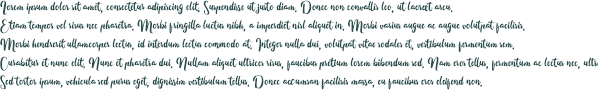 Lorem ipsum dolor sit amet, consectetur adipiscing elit. Suspendisse ut justo diam. Donec non convallis leo, ut laoreet arcu.
Etiam tempor vel risus nec pharetra. Morbi fringilla luctus nibh, a imperdiet nisl aliquet in. Morbi varius augue ac augue volutpat facilisis.
Morbi hendrerit ullamcorper lectus, id interdum lectus commodo at. Integer nulla dui, volutpat vitae sodales et, vestibulum fermentum sem.
Curabitur et nunc elit. Nunc et pharetra dui. Nullam aliquet ultrices risus, faucibus pretium lorem bibendum sed. Nam eros tellus, fermentum ac lectus nec, ultri
Sed tortor ipsum, vehicula sed purus eget, dignissim vestibulum tellus. Donec accumsan facilisis massa, eu faucibus eros eleifend non.